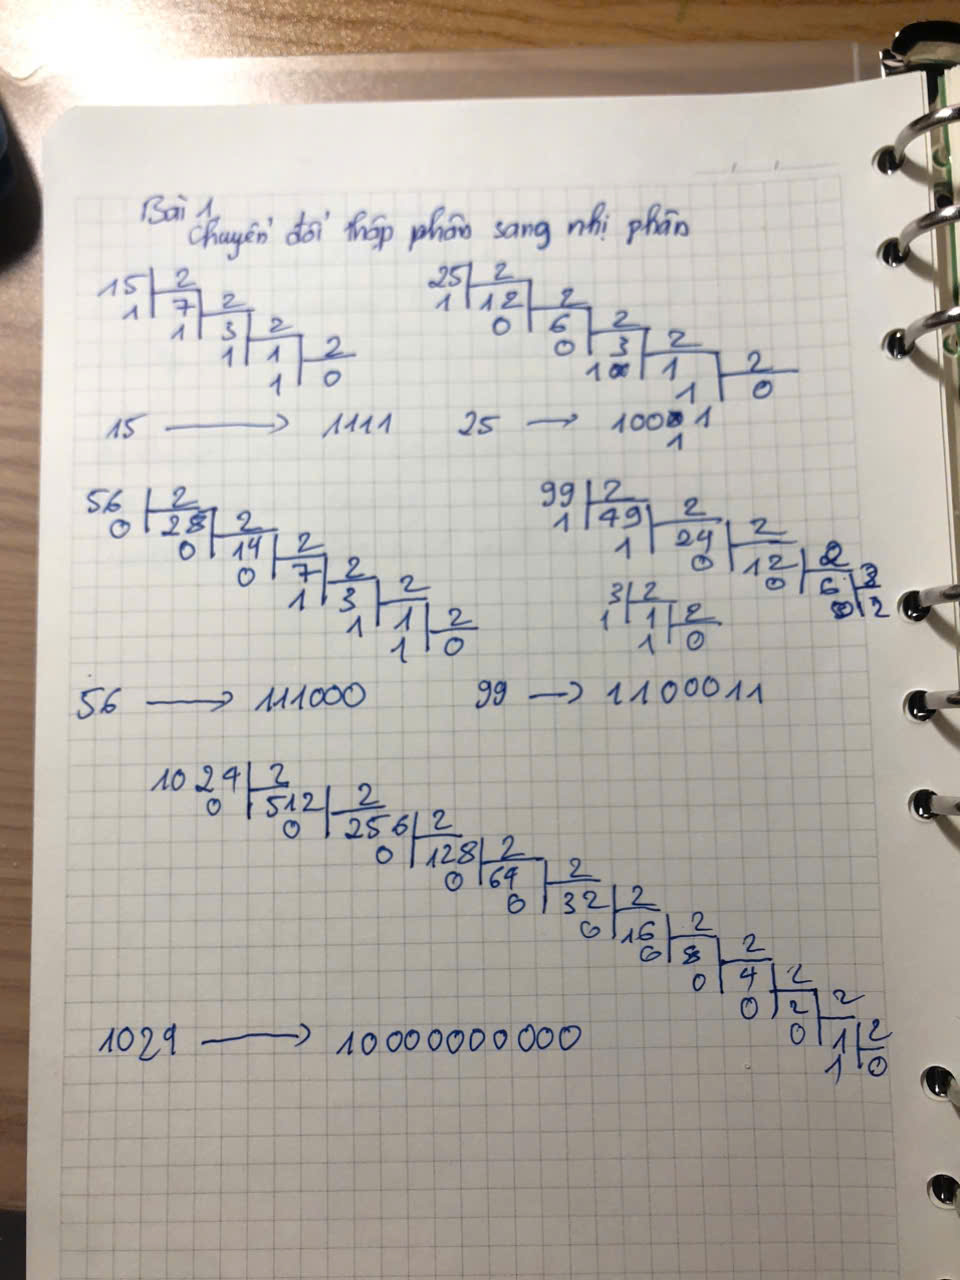 Bài 1
Chuyển đổi thập phân sang nhị phân
15 2 25 2
1 7 2 1 12 2
1 3 2 0 6 2
1 1 2 0 3 2
1 0 1 1 2
1 0
15 → 1111 25 → 100 1
1
56 2 99 2
0 28 2 1 49 2
0 14 2 1 24 2
0 7 2 0 12 2
1 3 2 0 6
1 1 2 3 2
1 0 1 1 2
1 0
56 → 111000 99 → 1100011
1024 2
0 512 2
0 256 2
0 128 2
0 64 2
0 32 2
0 16 2
0 8 2
0 4 2
0 2 2
0 1 2
1 0
1024 → 10000000000